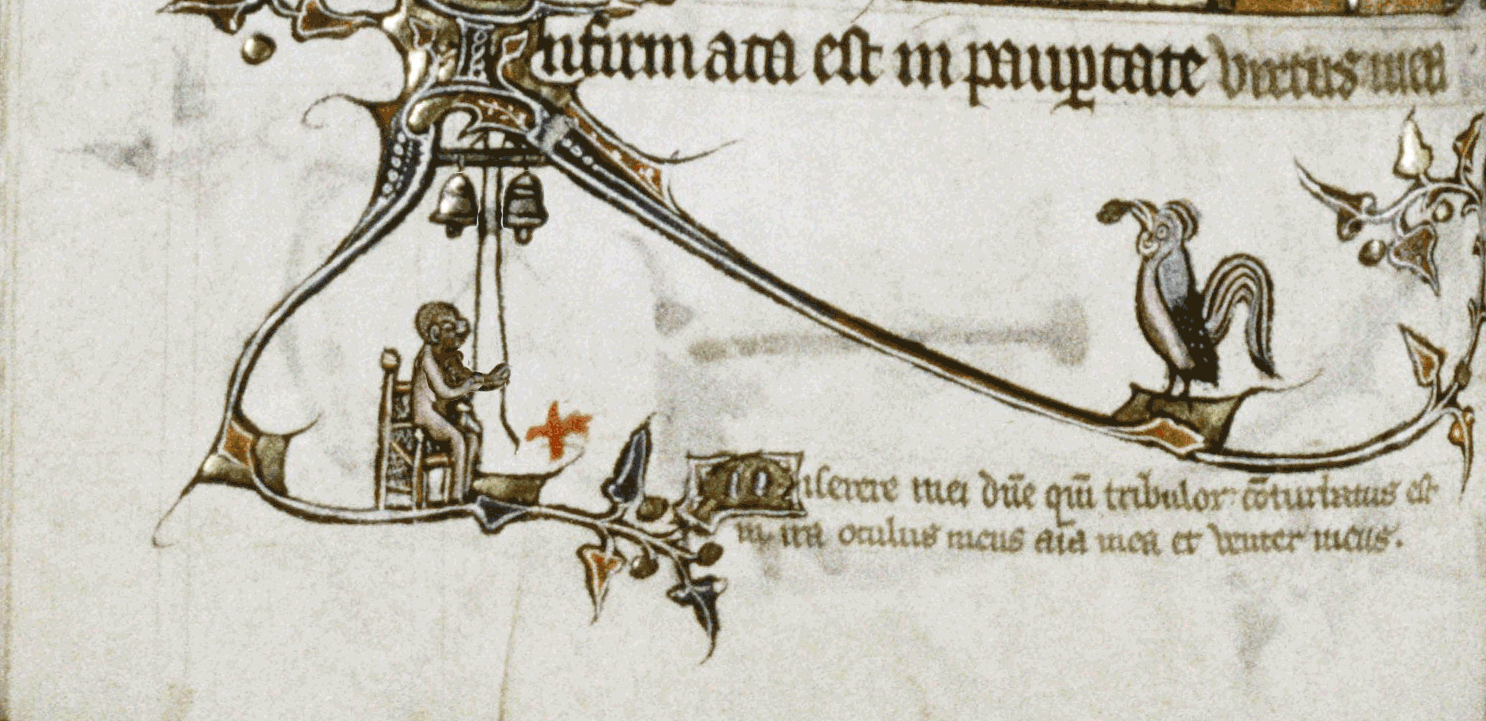 nfirmata est in paup̱tate virtus mea
Miserere mei dñe qm̄ tribulor cōturbatus est
in ira oculus meus aīa mea et venter meus.